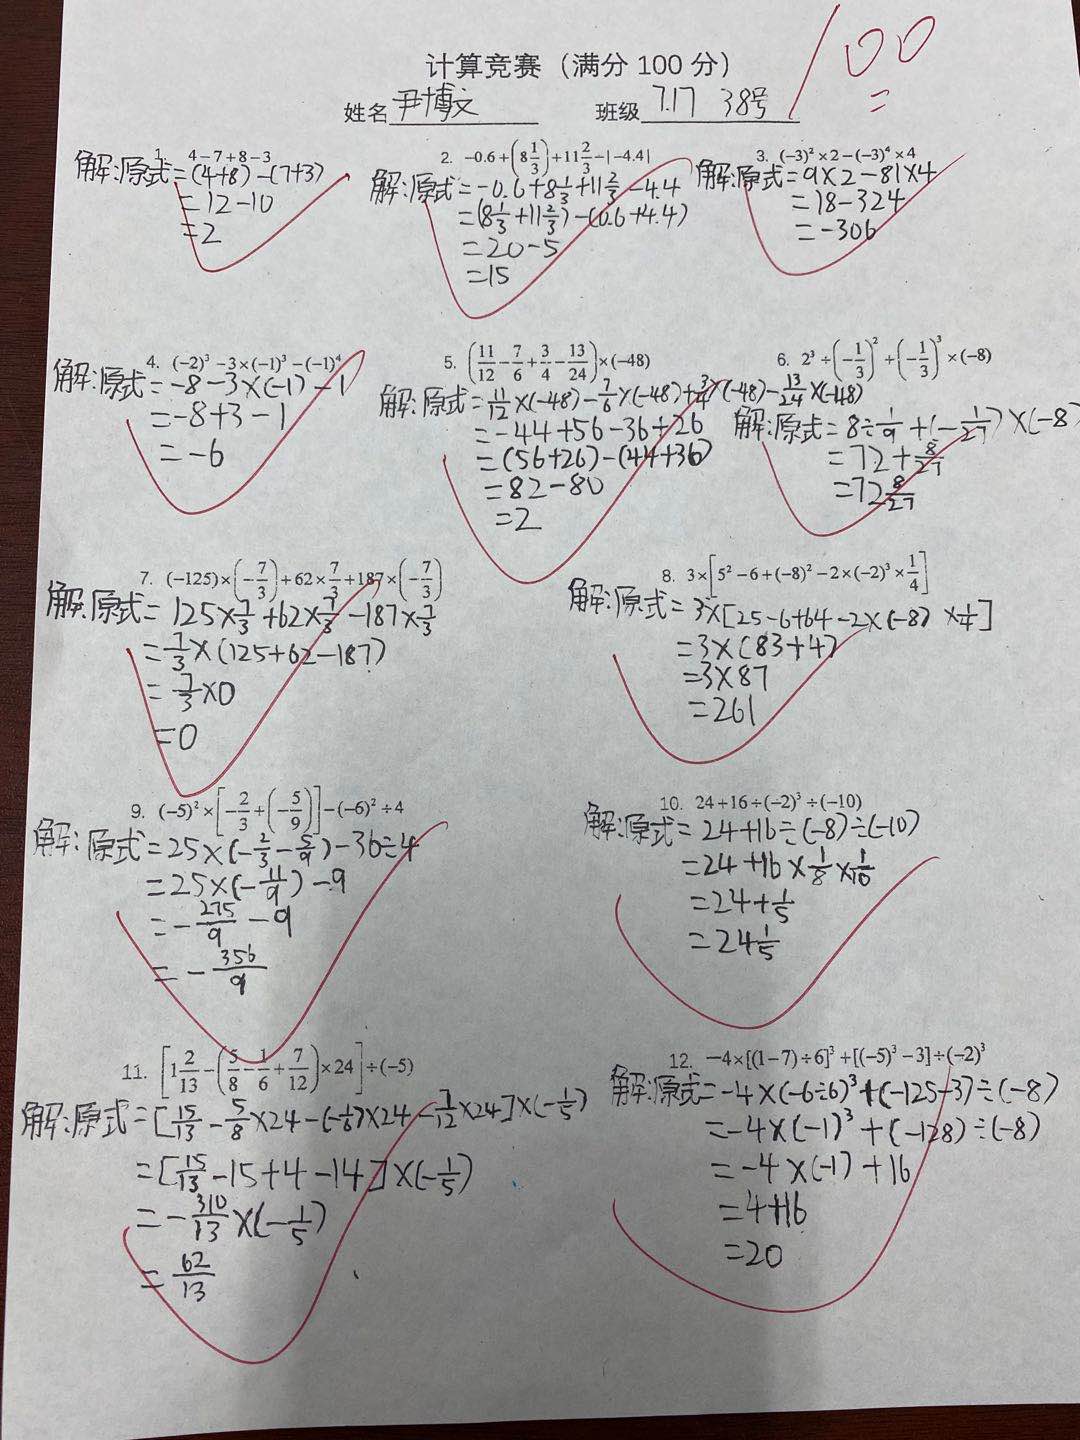 计算竞赛（满分 100 分）
100
姓名 尹博文 班级 7.17 38号
1. 4-7+8-3
解:原式=(4+8)-(7+3)
=12-10
=2
2. -0.6+(8 1/3)+11 2/3-|-4.4|
解:原式=-0.6+8 1/3+11 2/3-4.4
=(8 1/3+11 2/3)-(0.6+4.4)
=20-5
=15
3. (-3)²×2-(-3)⁴×4
解:原式=9×2-81×4
=18-324
=-306
4. (-2)³-3×(-1)³-(-1)⁴
解:原式=-8-3×(-1)-1
=-8+3-1
=-6
5. (11/12-7/6+3/4-13/24)×(-48)
解:原式=11/12×(-48)-7/6×(-48)+3/4×(-48)-13/24×(-48)
=-44+56-36+26
=(56+26)-(44+36)
=82-80
=2
6. 2³÷(-1/3)²+(-1/3)³×(-8)
解:原式=8÷1/9+(-1/27)×(-8)
=72+8/27
=72 8/27
7. (-125)×(-7/3)+62×7/3+187×(-7/3)
解:原式=125×7/3+62×7/3-187×7/3
=7/3×(125+62-187)
=7/3×0
=0
8. 3×[5²-6+(-8)²-2×(-2)³×1/4]
解:原式=3×[25-6+64-2×(-8)×1/4]
=3×(83+4)
=3×87
=261
9. (-5)²×[-2/3+(-5/9)]-(-6)²÷4
解:原式=25×(-2/3-5/9)-36÷4
=25×(-11/9)-9
=-275/9-9
=-356/9
10. 24+16÷(-2)³÷(-10)
解:原式=24+16÷(-8)÷(-10)
=24+16×1/8×1/10
=24+1/5
=24 1/5
11. [1 2/13-(5/8-1/6+7/12)×24]÷(-5)
解:原式=[15/13-5/8×24-(-1/6)×24-7/12×24]×(-1/5)
=[15/13-15+4-14]×(-1/5)
=-310/13×(-1/5)
=62/13
12. -4×[(1-7)÷6]³+[(-5)³-3]÷(-2)³
解:原式=-4×(-6÷6)³+(-125-3)÷(-8)
=-4×(-1)³+(-128)÷(-8)
=-4×(-1)+16
=4+16
=20